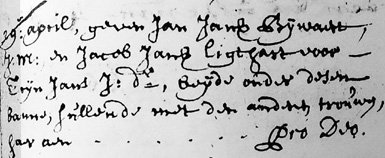 29: april, geven Jan Jansz Bijwaert,
j.m: en Jacob Jansz Ligthart voor
Trijn Jans J: dr, beyde onder desen
banne, sullende met den andren trouwen,
har aen . . . . . . Pro Deo.